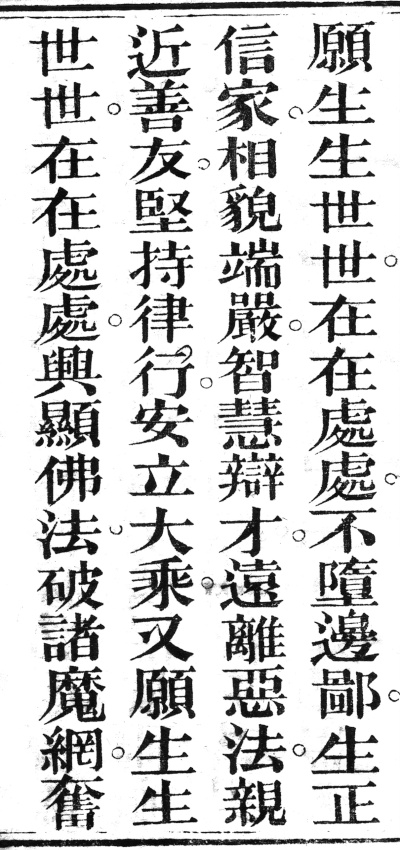 願生生世世。在在處處。不墮邊鄙。生正
信家。相貌端嚴。智慧辯才。遠離惡法。親
近善友。堅持律行。安立大乘。又願生生
世世。在在處處。興顯佛法。破諸魔網。奮